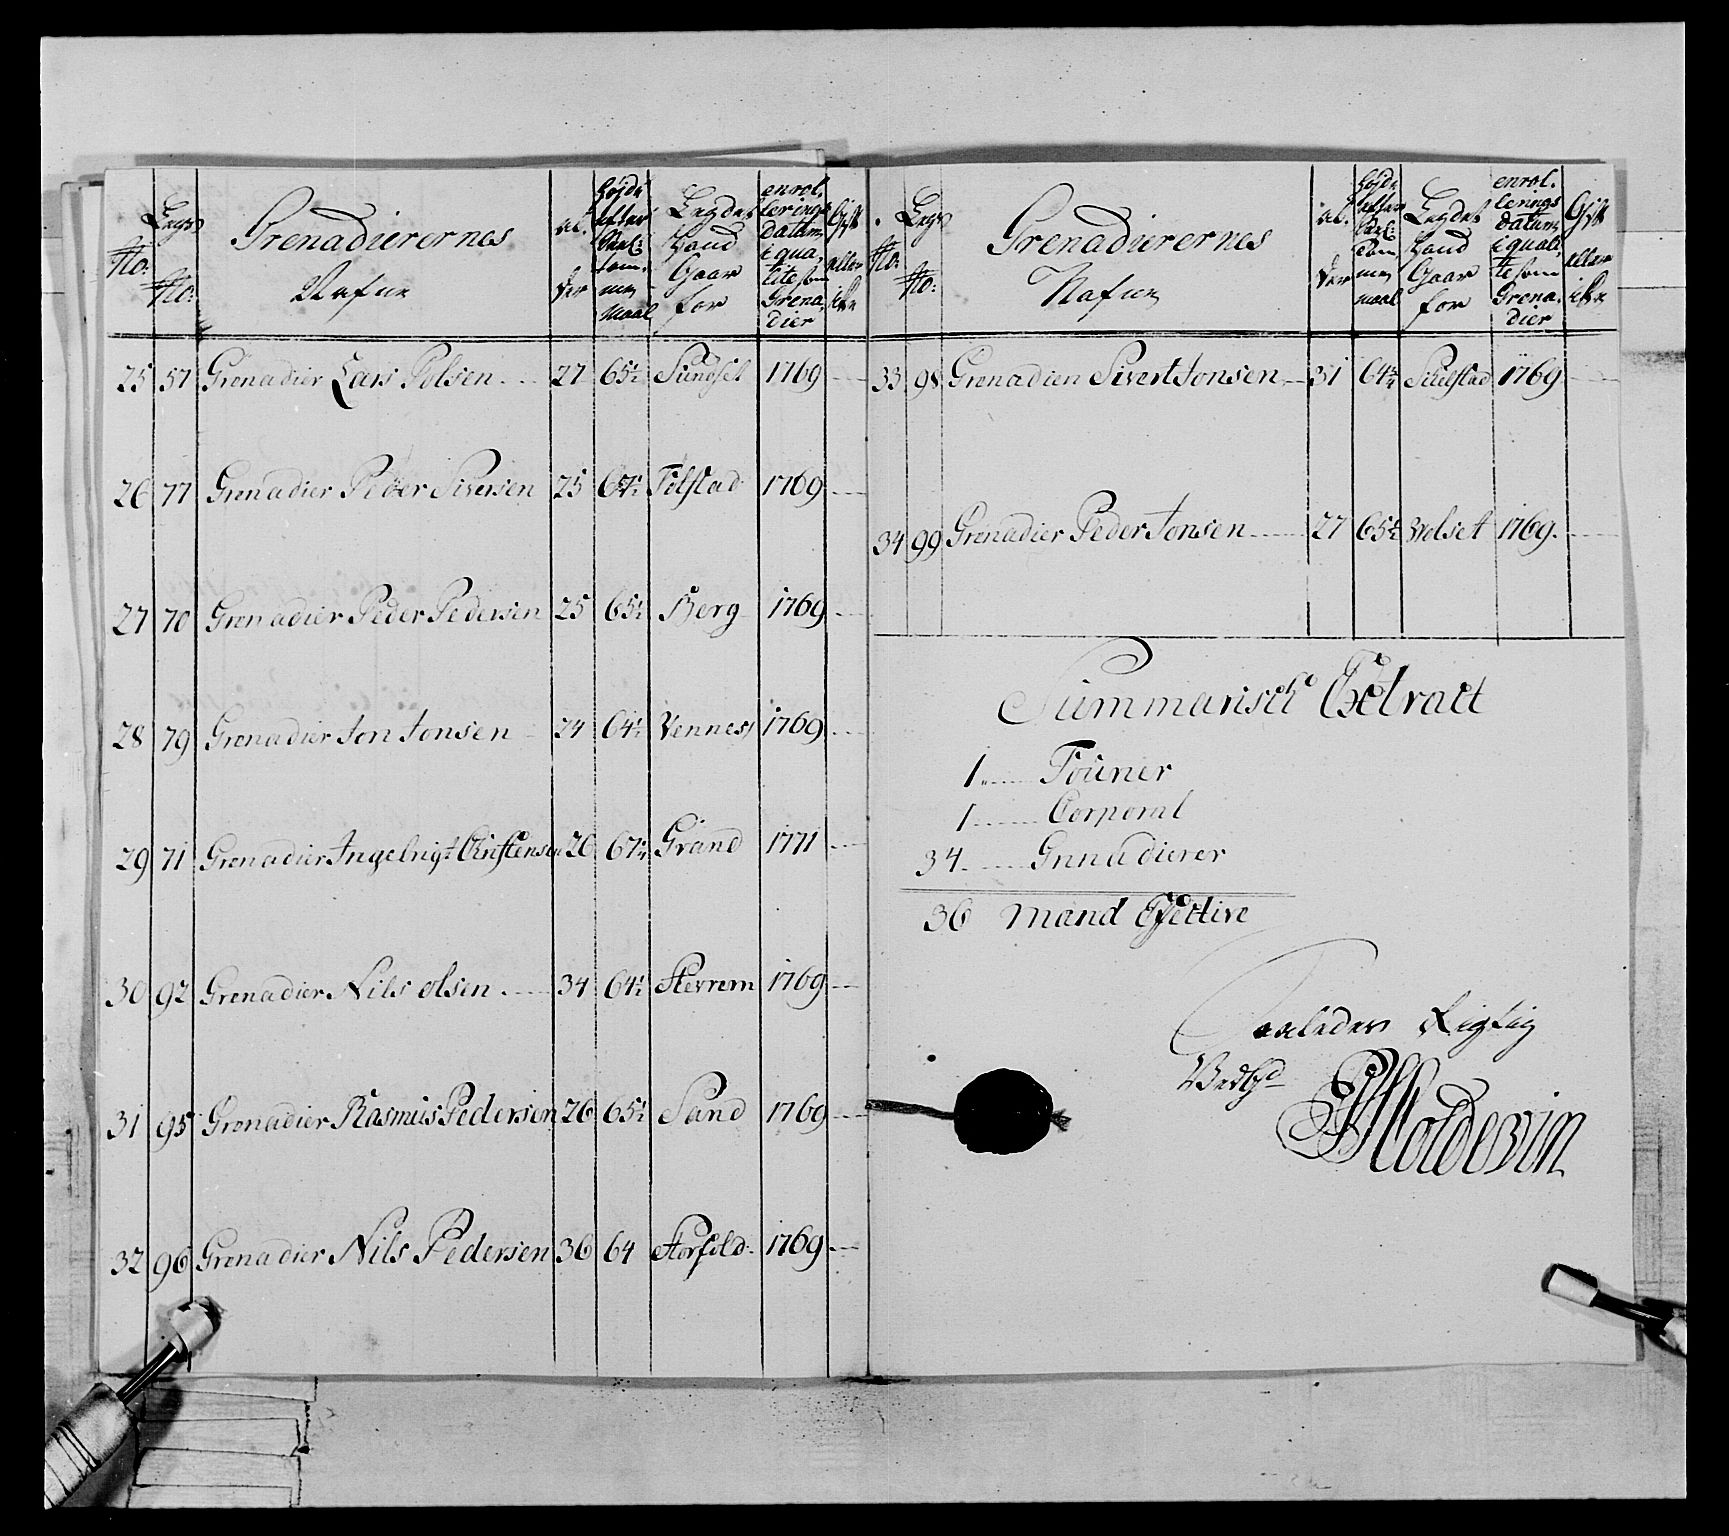 No:
Legs
No:
Grenadierernes
Nafne
al:
der
Højde
efter
Tom-
me
Maal
Legdet
hand
Gaar
for
enrol-
lerings
Datum
i qua-
lite som
Grena-
dier
Gift
eller
ikke
25 57 Grenadier Lars Polsen 27 65½ Sundset 1769
26 77 Grenadier Peder Siversen 25 67½ Tilstad 1769
27 70 Grenadier Peder Pedersen 25 65½ Berg 1769
28 79 Grenadier Jon Jonsen 24 64½ Vennes 1769
29 71 Grenadier Ingebrigt Christensen 26 67½ Grand 1771
30 92 Grenadier Nils olsen 34 64½ Sterrem 1769
31 95 Grenadier Rasmus Pedersen 26 65½ Sand 1769
32 96 Grenadier Nils Pedersen 36 64 Storfold 1769
No:
Legs
No:
Grenadierernes
Nafne
al:
der
Højde
efter
Tom-
me
maal
Legdet
hand
Gaar
for
enrol-
lerings
datum
i quali-
te som
Grena-
dier
Gift
eller
ikke
33 98 Grenadier Sivert Jonsen 31 64½ 1769
34 99 Grenadier Peder Jonsen 27 65½ Volset 1769
Summarisch Extract
1 Fourier
1 Corporal
34 Grenadierer
36 Mand Effective
Saaledes Rigtig
Holdevin